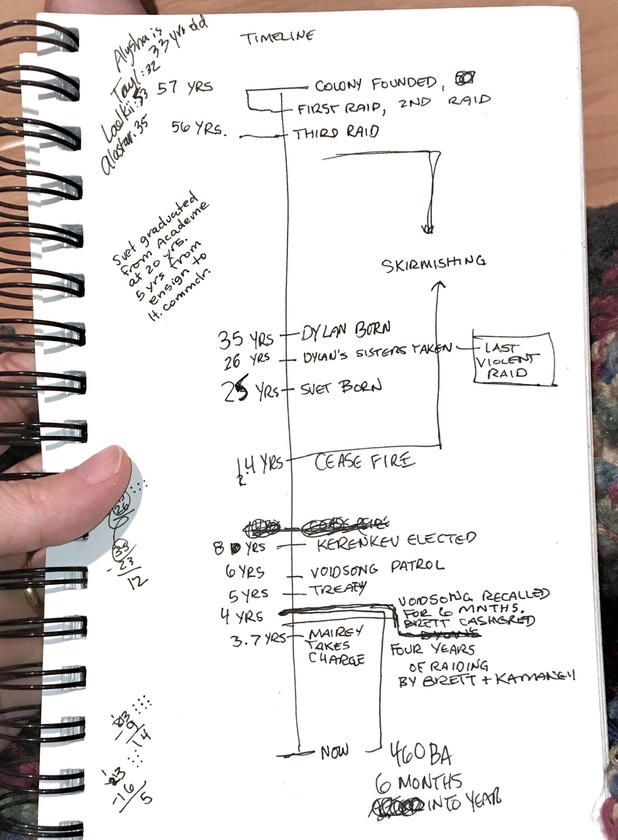 TIMELINE
Alysha is
33 yrs old
Taylor: 32
Laelkii: 33
Alastar: 35
57 YRS
COLONY FOUNDED,
FIRST RAID, 2ND RAID
56 YRS.
THIRD RAID
Svet graduated
from Academe
at 20 yrs.
5 yrs from
ensign to
lt. commdr.
SKIRMISHING
35 YRS
DYLAN BORN
26 YRS
DYLAN'S SISTERS TAKEN
LAST
VIOLENT
RAID
25 YRS
SVET BORN
14 YRS
2
CEASE FIRE
CEASE FIRE
8 YRS
KERENKEV ELECTED
6 YRS
VOIDSONG PATROL
5 YRS
TREATY
4 YRS
VOIDSONG RECALLED
FOR 6 MNTHS.
BRETT CASHIERED
3.7 YRS
MAIREY
TAKES
CHARGE
FOUR YEARS
OF RAIDING
BY BRETT + KAMANEY
NOW
460 BA
6 MONTHS
INTO YEAR
26
33
- 23
12
23
- 9
14
23
- 16
5